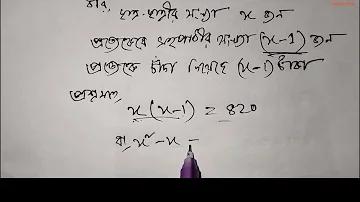 ধরি, ছাত্র-ছাত্রীর সংখ্যা x জন
প্রত্যেকের সহপাঠীর সংখ্যা (x-1) জন
প্রত্যেকে চাঁদা দিয়েছে (x-1) টাকা
প্রশ্নমতে,
x(x-1) = 420
বা, x² - x =